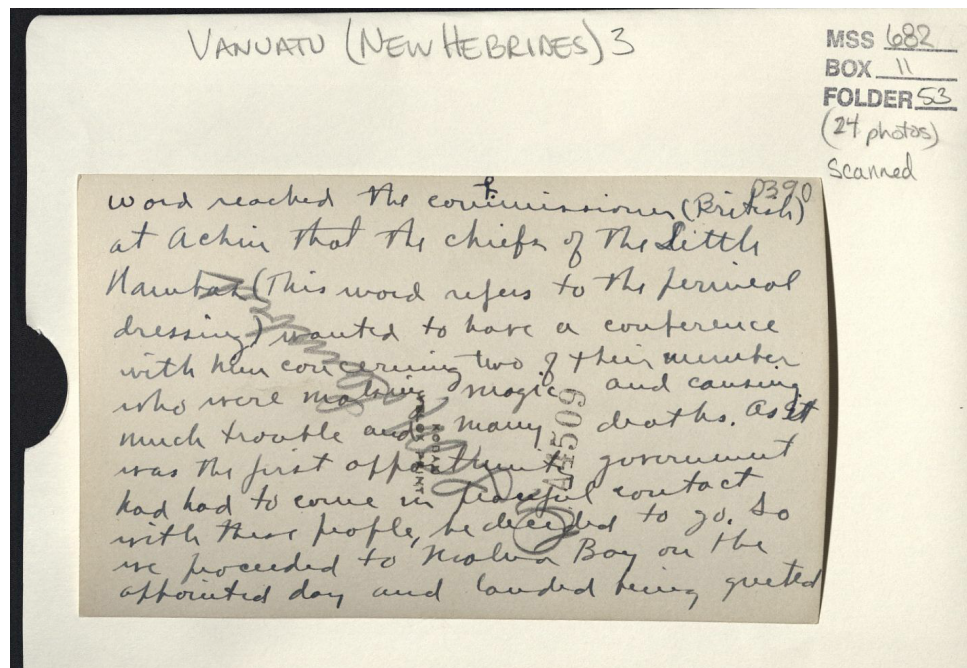 VANUATU (NEW HEBRIDES) 3
MSS 682
BOX 11
FOLDER 53
(24 photos)
scanned
0390
word reached the commissioner (British)
at Achin that the chiefs of the Little
Nambas (This word refers to the perineal
dressing) wanted to have a conference
with him concerning two of their number
who were making magic and causing
much trouble and many deaths. As it
was the first opportunity government
had had to come in peaceful contact
with these people, he decided to go. So
we proceeded to Bay on the
appointed day and landed being greeted
KODAK
VELOX
PRINT